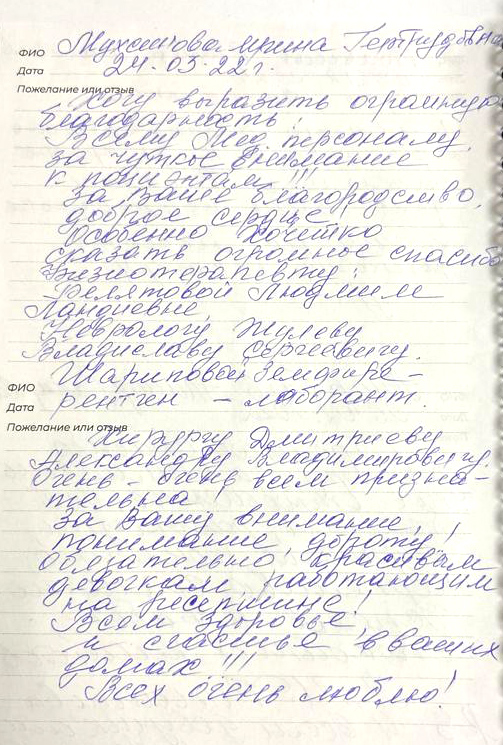 ФИО Мухсинова Ирина Гертрудовна
Дата 24.03.22 г.
Пожелание или отзыв
Хочу выразить огромную
благодарность!
Всему Мед. персоналу,
за чуткое внимание
к пациентам!!!
За Ваше благородство,
доброе сердце
Особенно хочется
сказать огромное спасибо
Физиотерапевту:
Людмиле
Неврологу Жулеву
Владиславу Сергеевичу.
ФИО Шариповой Земфире -
Дата рентген - лаборант.
Пожелание или отзыв
Хирургу Дмитриеву
Александру Владимировичу.
Очень - очень всем призна-
тельна
за Вашу внимание,
понимание, доброту!
Обязательно, красивым
девочкам работающим
на ресепшине!
Всем здоровье
и счастье в ваших
домах!!!
Всех очень люблю!